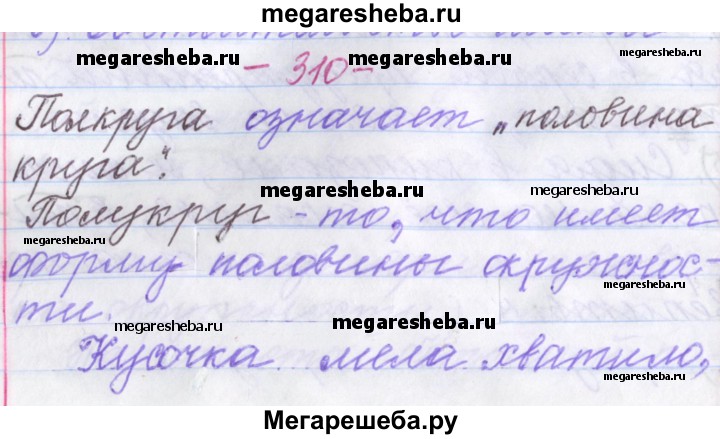 megaresheba.ru
megaresheba.ru
megaresheba.ru
- 310 -
Полкруга означает „половина
megaresheba.ru
круга".
megaresheba.ru
megaresheba.ru
Полукруг - то, что имеет
megaresheba.ru
форму половины окружнос-
ти.
megaresheba.ru
megaresheba.ru
Кусочка мела хватило,
megaresheba.ru
Мегарешеба.ру